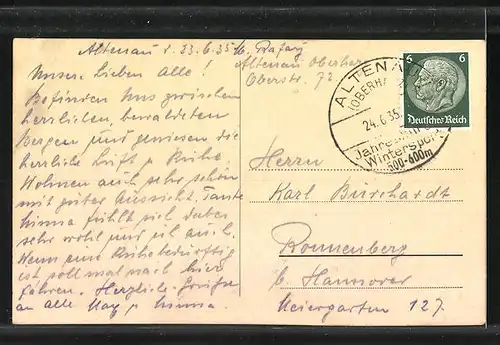 Altenau d. 23.6.35
Altenau Oberharz
Oberstr. 72
Unsre Lieben Alle!
Befinden uns zwischen
herrlichen, bewaldeten
Bergen und geniesen die
herrliche Luft u. Ruhe.
Wohnen auch sehr schön
mit guter Aussicht. Tante
Minna fühlt sich dabei
sehr wohl und ich auch.
Wenn man Ruhebedürftig
ist soll mal nach hier
fahren. Herzliche Grüße
an alle May u. Minna.
ALTENAU
(OBERHARZ
24.6.35
Wintersport
500-600m
6 6
Deutsches Reich
Herrn
Karl Burchardt
Ronnenberg
b. Hannover
Meiergarten 127.